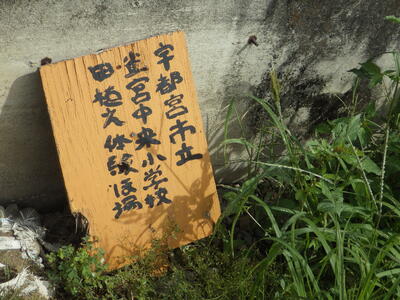 宇都宮市立
雀宮中央小学校
田植え体験ほ場